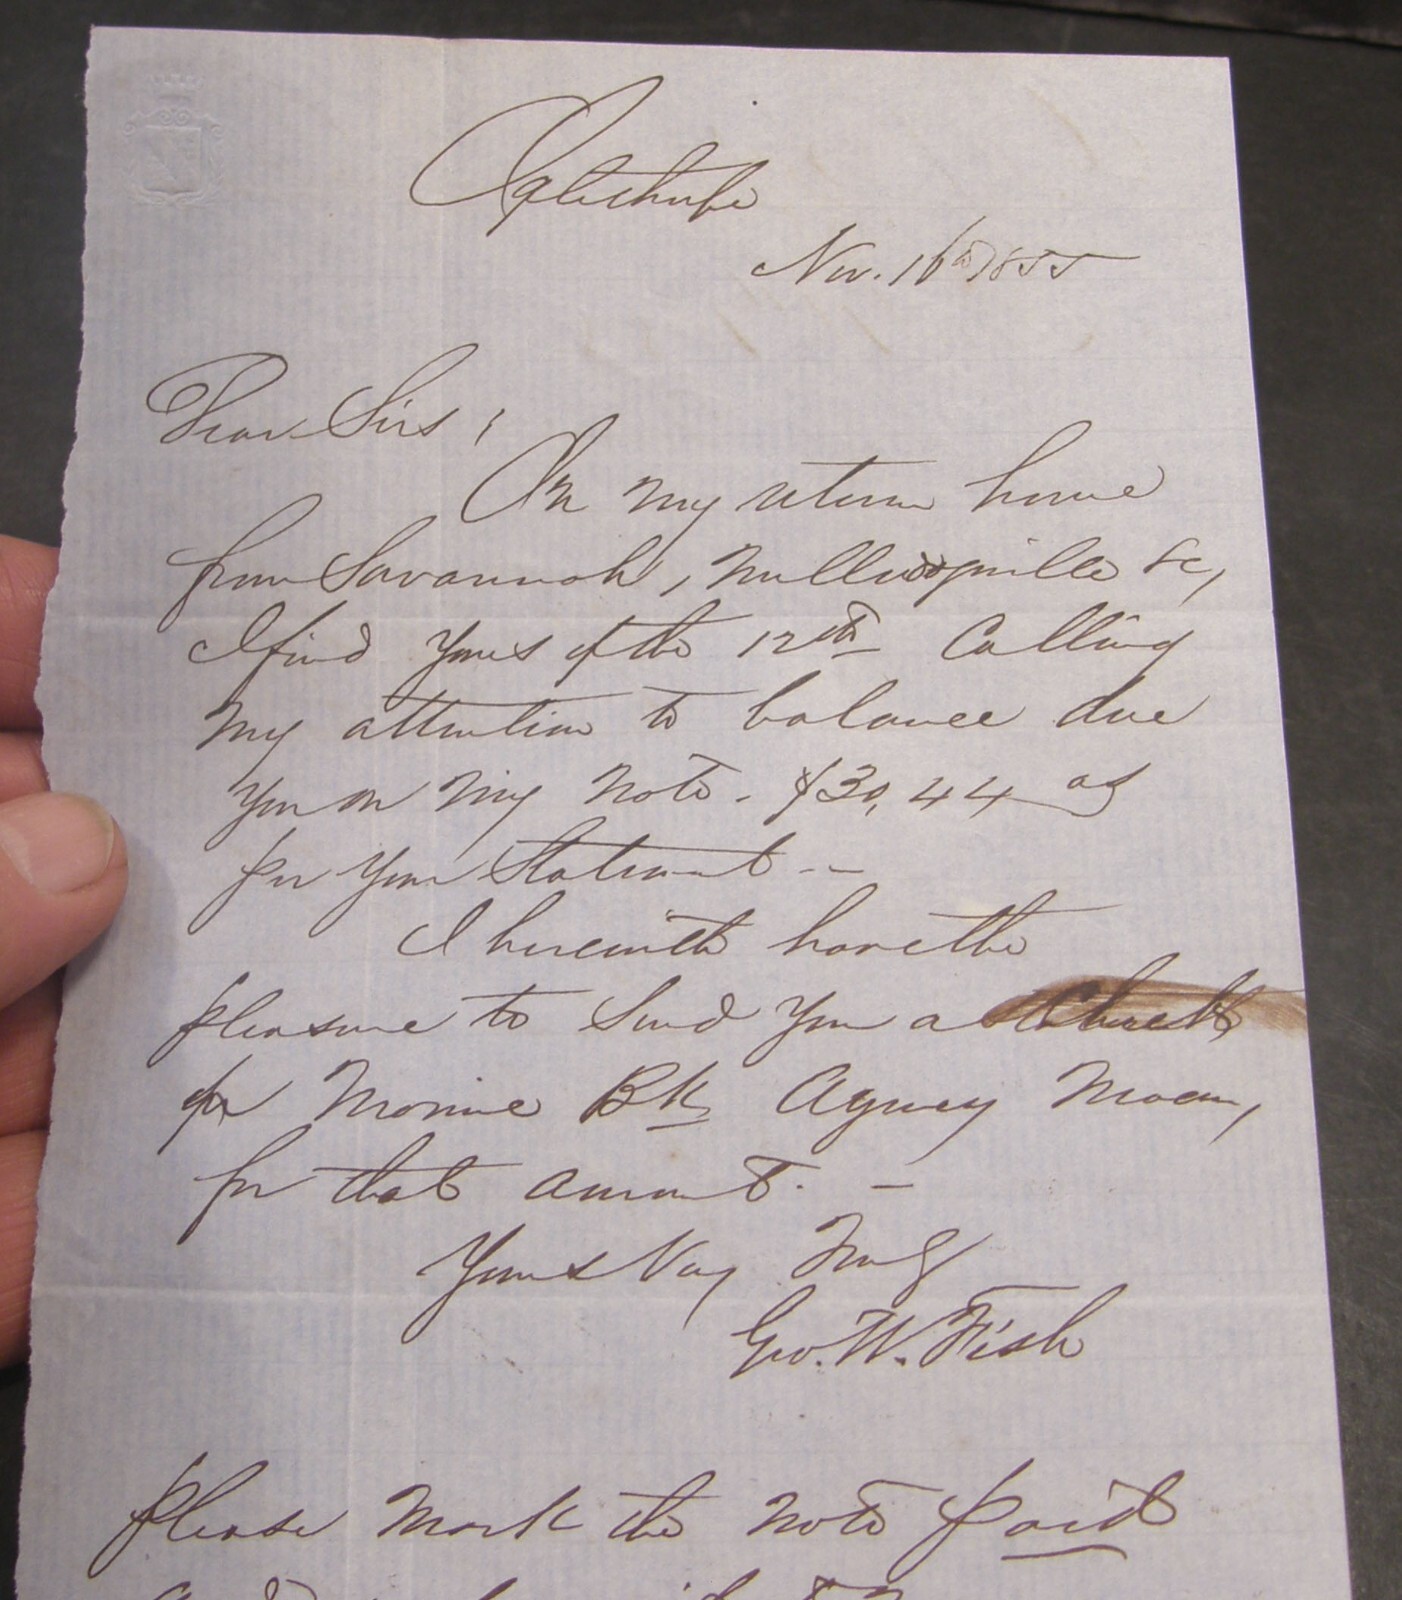 Oglethorpe
Nov. 16th 1855
Dear Sirs;
On my return home
from Savannah, Milledgeville &c,
I find yours of the 12th Calling
my attention to balance due
you on my note. $30,44 as
per your Statement --
I herewith have the
pleasure to Send you a Check
on Marine Bk Agency Macon,
for that amount. -
Yours Very Truly
Geo. W. Fish
please mark the note paid